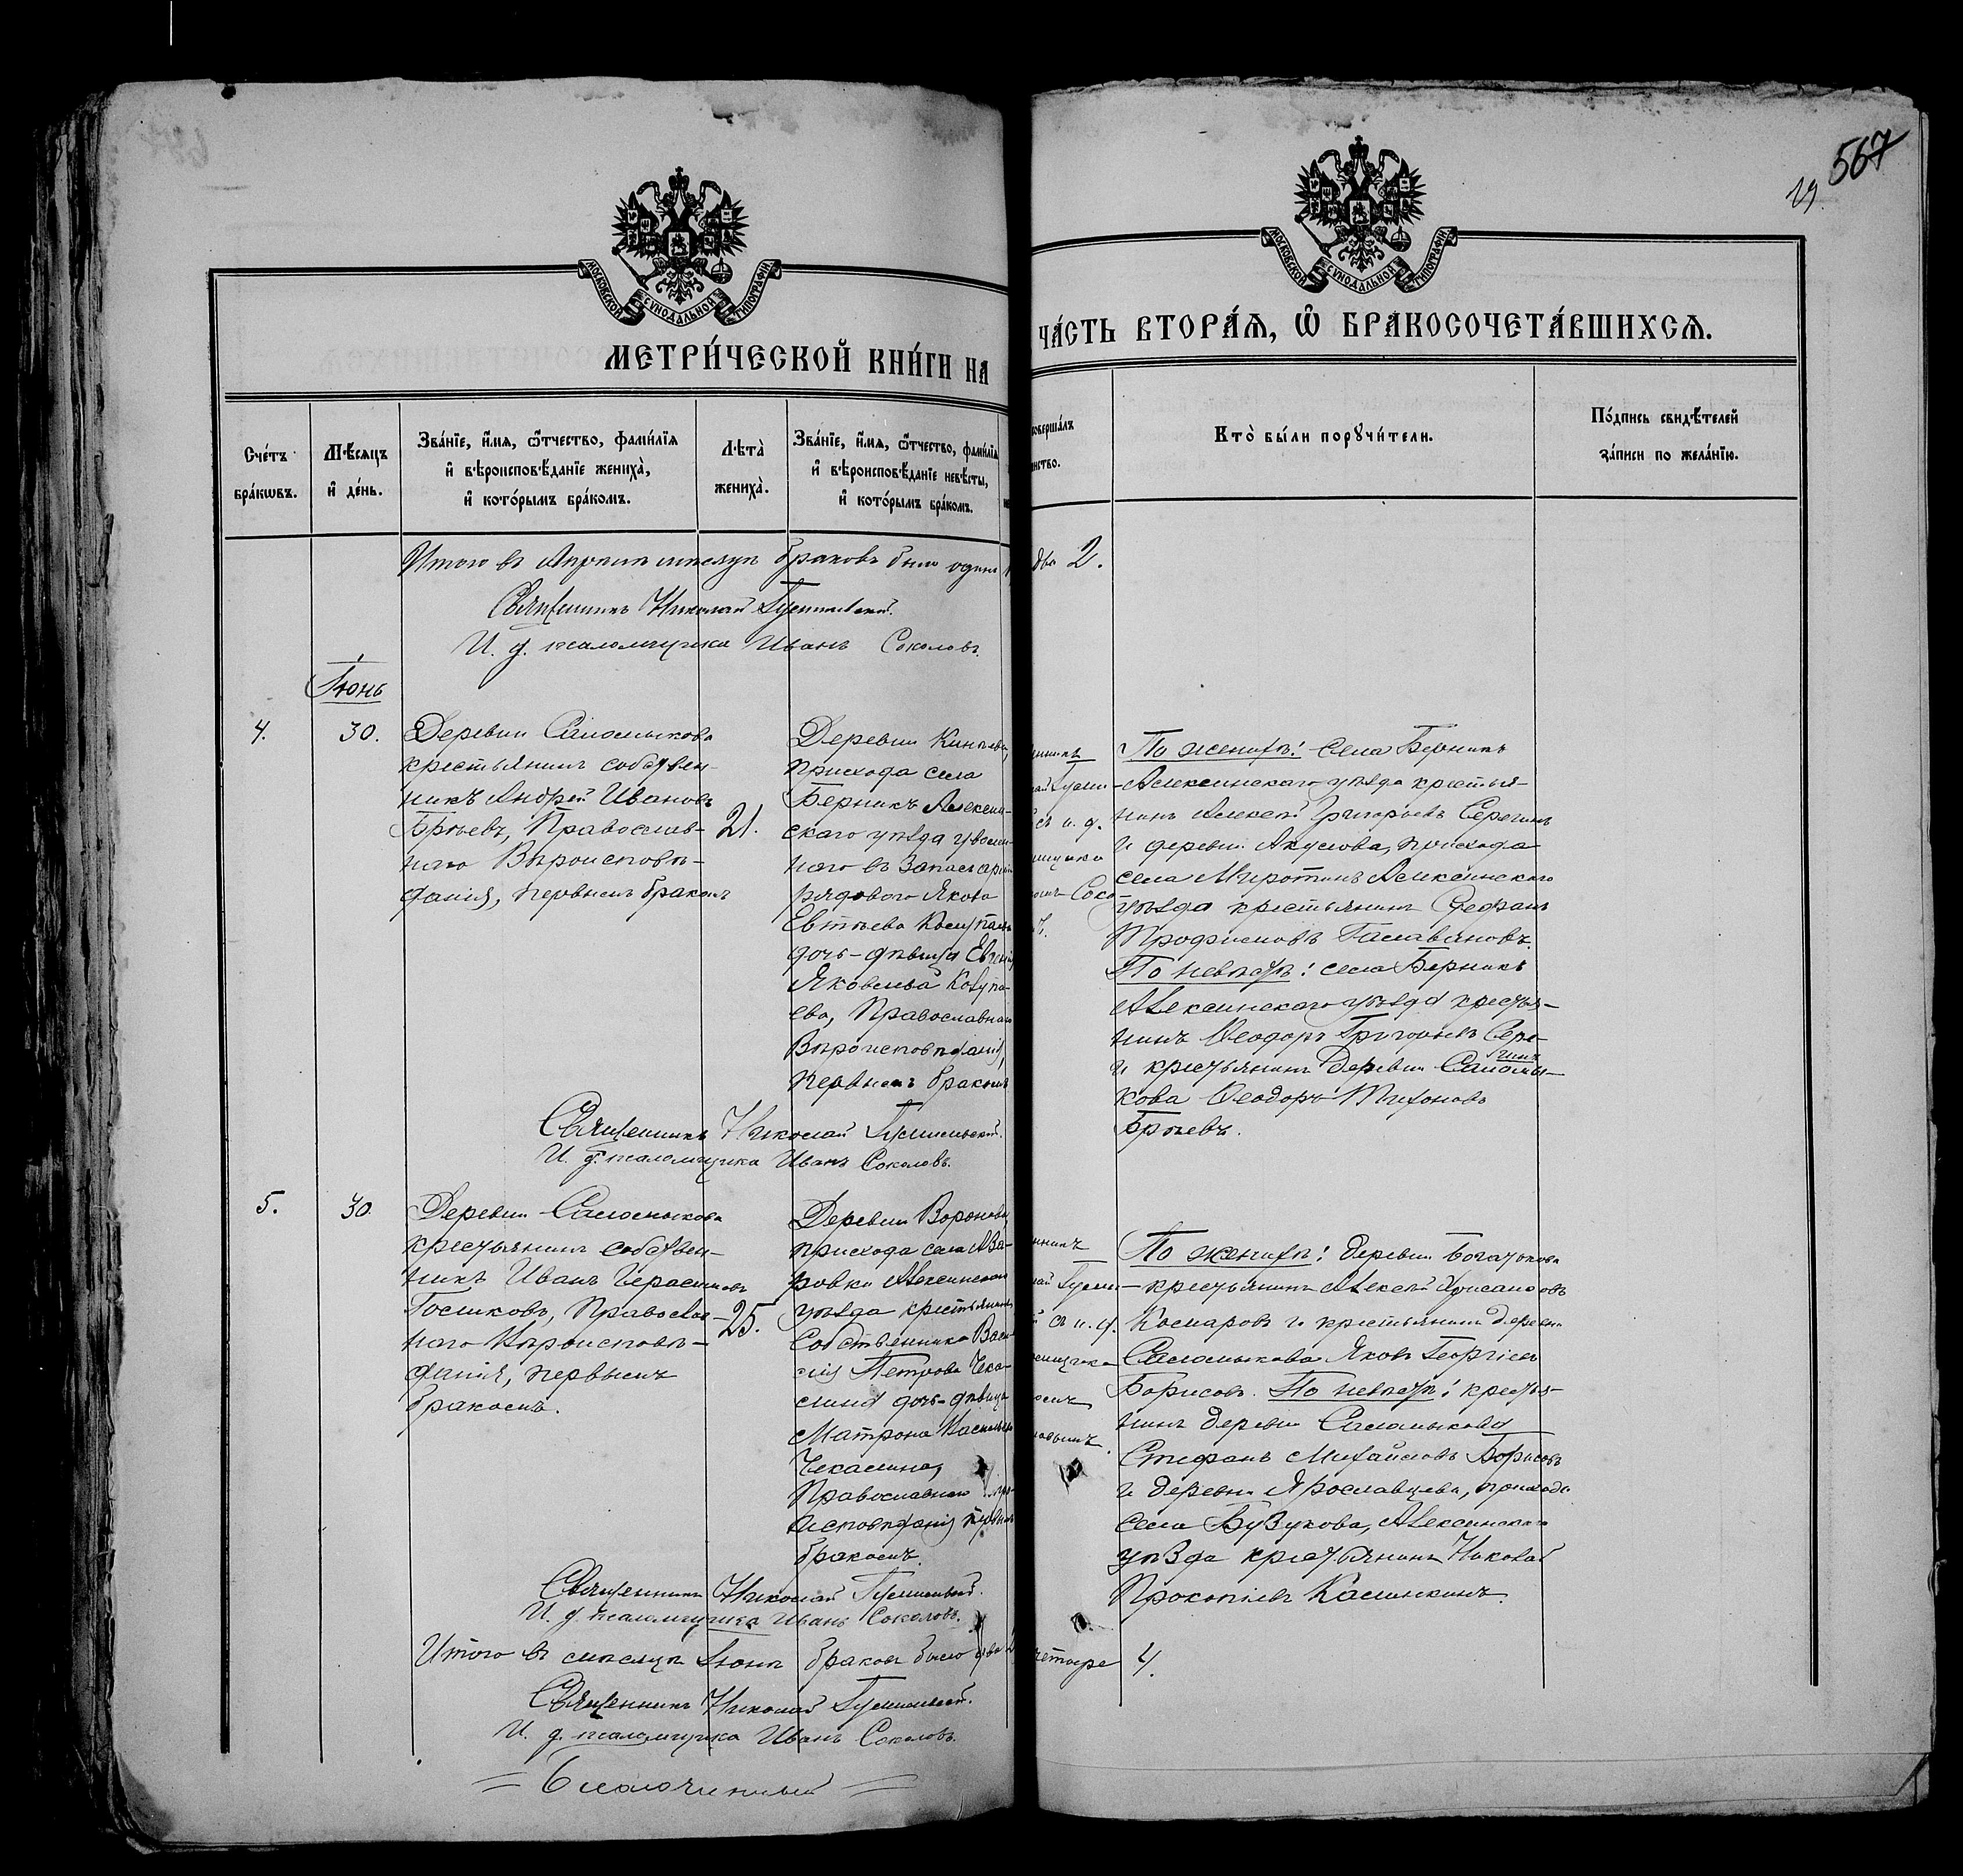 567
19
МОСКОВСКОЙ СѴНОДАЛЬНОЙ ТИПОГРАФІИ
МОСКОВСКОЙ СѴНОДАЛЬНОЙ ТИПОГРАФІИ
МЕТРИ́ЧЕСКОЙ КНИ́ГИ НА
ЧА́СТЬ ВТОРА́Я, Ѽ БРАКОСОЧЕТА́ВШИХСЯ.
Сче́тъ бра́кѡвъ.
Мѣ́сяцъ и҆ де́нь.
Зва́нїе, и҆́мя, ѿ́тчество, фами́лїя
и҆ вѣроисповѣ́данїе жениха̀,
и҆ кото́рымъ бра́комъ.
Лѣ́та̀ жениха̀.
Зва́нїе, и҆́мя, ѿ́тчество, фами́лїя
и҆ вѣроисповѣ́данїе невѣ́сты,
и҆ кото́рымъ бра́комъ.
соверша́лъ
Кто̀ бы́ли порꙋчи́тели.
По́дпись свидѣ́телей
за́писи по жела́нїю.
Итого въ Апрѣлѣ мѣсяцѣ браковъ было одинъ
два 2.
Священникъ Николай
И. д. псаломщика Иванъ Соколовъ.
Іюнь
4.
30.
Деревни Саломыкова
крестьянинъ собствен-
никъ Андрей Ивановъ
Брѣевъ, Православ-
наго Вѣроисповѣ-
данія, первымъ бракомъ
21.
Деревни
прихода села
Берникъ Алексин-
скаго уѣзда уволен-
наго въ запасъ арміи
рядового Якова
Евтѣева
дочь-дѣвица
Яковлева Колупа-
ева, Православнаго
Вѣроисповѣданія,
первымъ бракомъ
По женихѣ: села Берникъ
Алексинскаго уѣзда крестья-
нинъ Алексѣй Григорьевъ Серегинъ
и деревни Акулова, прихода
села Миротинъ Алексинскаго
уѣзда крестьянинъ Стефанъ
Трофимовъ
По невѣстѣ: села Берникъ
Алексинскаго уѣзда крестья-
нинъ Ѳеодоръ Григорьевъ Сере-
гинъ
и крестьянинъ деревни Саломы-
кова Ѳеодоръ Тихоновъ
Брѣевъ.
Священникъ Николай
И. д. псаломщика Иванъ Соколовъ.
5.
30.
Деревни Саломыкова
крестьянинъ собствен-
никъ Иванъ Герасимовъ
Голиковъ, Православ-
наго Вѣроисповѣ-
данія, первымъ
бракомъ.
25.
Деревни Воронова,
прихода села Ава-
ровки Алексинскаго
уѣзда крестьянина
Собственника Васи-
лія Петрова Чека-
лина дочь-дѣвица
Матрона Васильева
Чекалина,
Православнаго
исповѣданія первымъ
бракомъ.
По женихѣ: деревни Богатькова
крестьянинъ Алексѣй Хрисановъ
Комаровъ и крестьянинъ деревни
Саломыкова Яковъ Георгіевъ
Борисовъ. По невѣстѣ: крестья-
нинъ деревни Саломыкова
Стефанъ Михайловъ Борисовъ
и деревни Ярославцева, прихода
села Бузукова, Алексинскаго
уѣзда крестьянинъ Николай
Прокопіевъ Калинкинъ.
Священникъ Николай
И. д. псаломщика Иванъ Соколовъ.
Итого въ мѣсяцѣ Іюнѣ браковъ было два
четыре 4.
Священникъ Николай
И. д. псаломщика Иванъ Соколовъ.
Благочинный